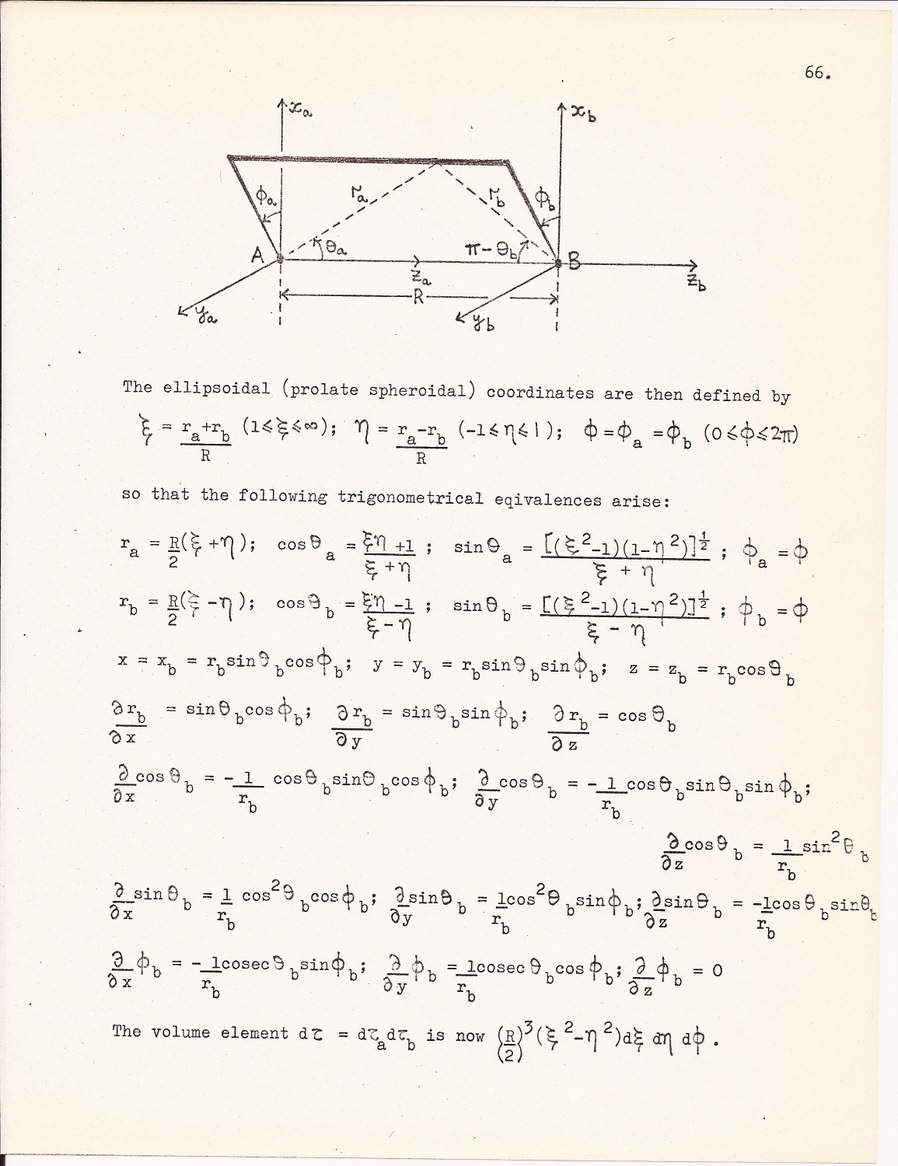 66.
xₐ
x_b
ϕₐ
rₐ
r_b
ϕ_b
A
θₐ
π-θ_b
B
zₐ
z_b
R
yₐ
y_b
The ellipsoidal (prolate spheroidal) coordinates are then defined by
ξ = (rₐ+r_b)/R (1≤ξ≤∞); η = (rₐ-r_b)/R (-1≤η≤1); ϕ=ϕₐ=ϕ_b (0≤ϕ≤2π)
so that the following trigonometrical eqivalences arise:
rₐ = R/2(ξ+η); cosθₐ = (ξη+1)/(ξ+η); sinθₐ = [(ξ²-1)(1-η²)]^½/(ξ+η); ϕₐ=ϕ
r_b = R/2(ξ-η); cosθ_b = (ξη-1)/(ξ-η); sinθ_b = [(ξ²-1)(1-η²)]^½/(ξ-η); ϕ_b=ϕ
x = x_b = r_b sinθ_b cosϕ_b; y = y_b = r_b sinθ_b sinϕ_b; z = z_b = r_b cosθ_b
∂r_b/∂x = sinθ_b cosϕ_b; ∂r_b/∂y = sinθ_b sinϕ_b; ∂r_b/∂z = cosθ_b
∂/∂x cosθ_b = -1/r_b cosθ_b sinθ_b cosϕ_b; ∂/∂y cosθ_b = -1/r_b cosθ_b sinθ_b sinϕ_b;
∂/∂z cosθ_b = 1/r_b sin²θ_b
∂/∂x sinθ_b = 1/r_b cos²θ_b cosϕ_b; ∂/∂y sinθ_b = 1/r_b cos²θ_b sinϕ_b; ∂/∂z sinθ_b = -1/r_b cosθ_b sinθ_b
∂/∂x ϕ_b = -1/r_b cosecθ_b sinϕ_b; ∂/∂y ϕ_b = 1/r_b cosecθ_b cosϕ_b; ∂/∂z ϕ_b = 0
The volume element dτ = dτₐdτ_b is now (R/2)³(ξ²-η²)dξ dη dϕ.